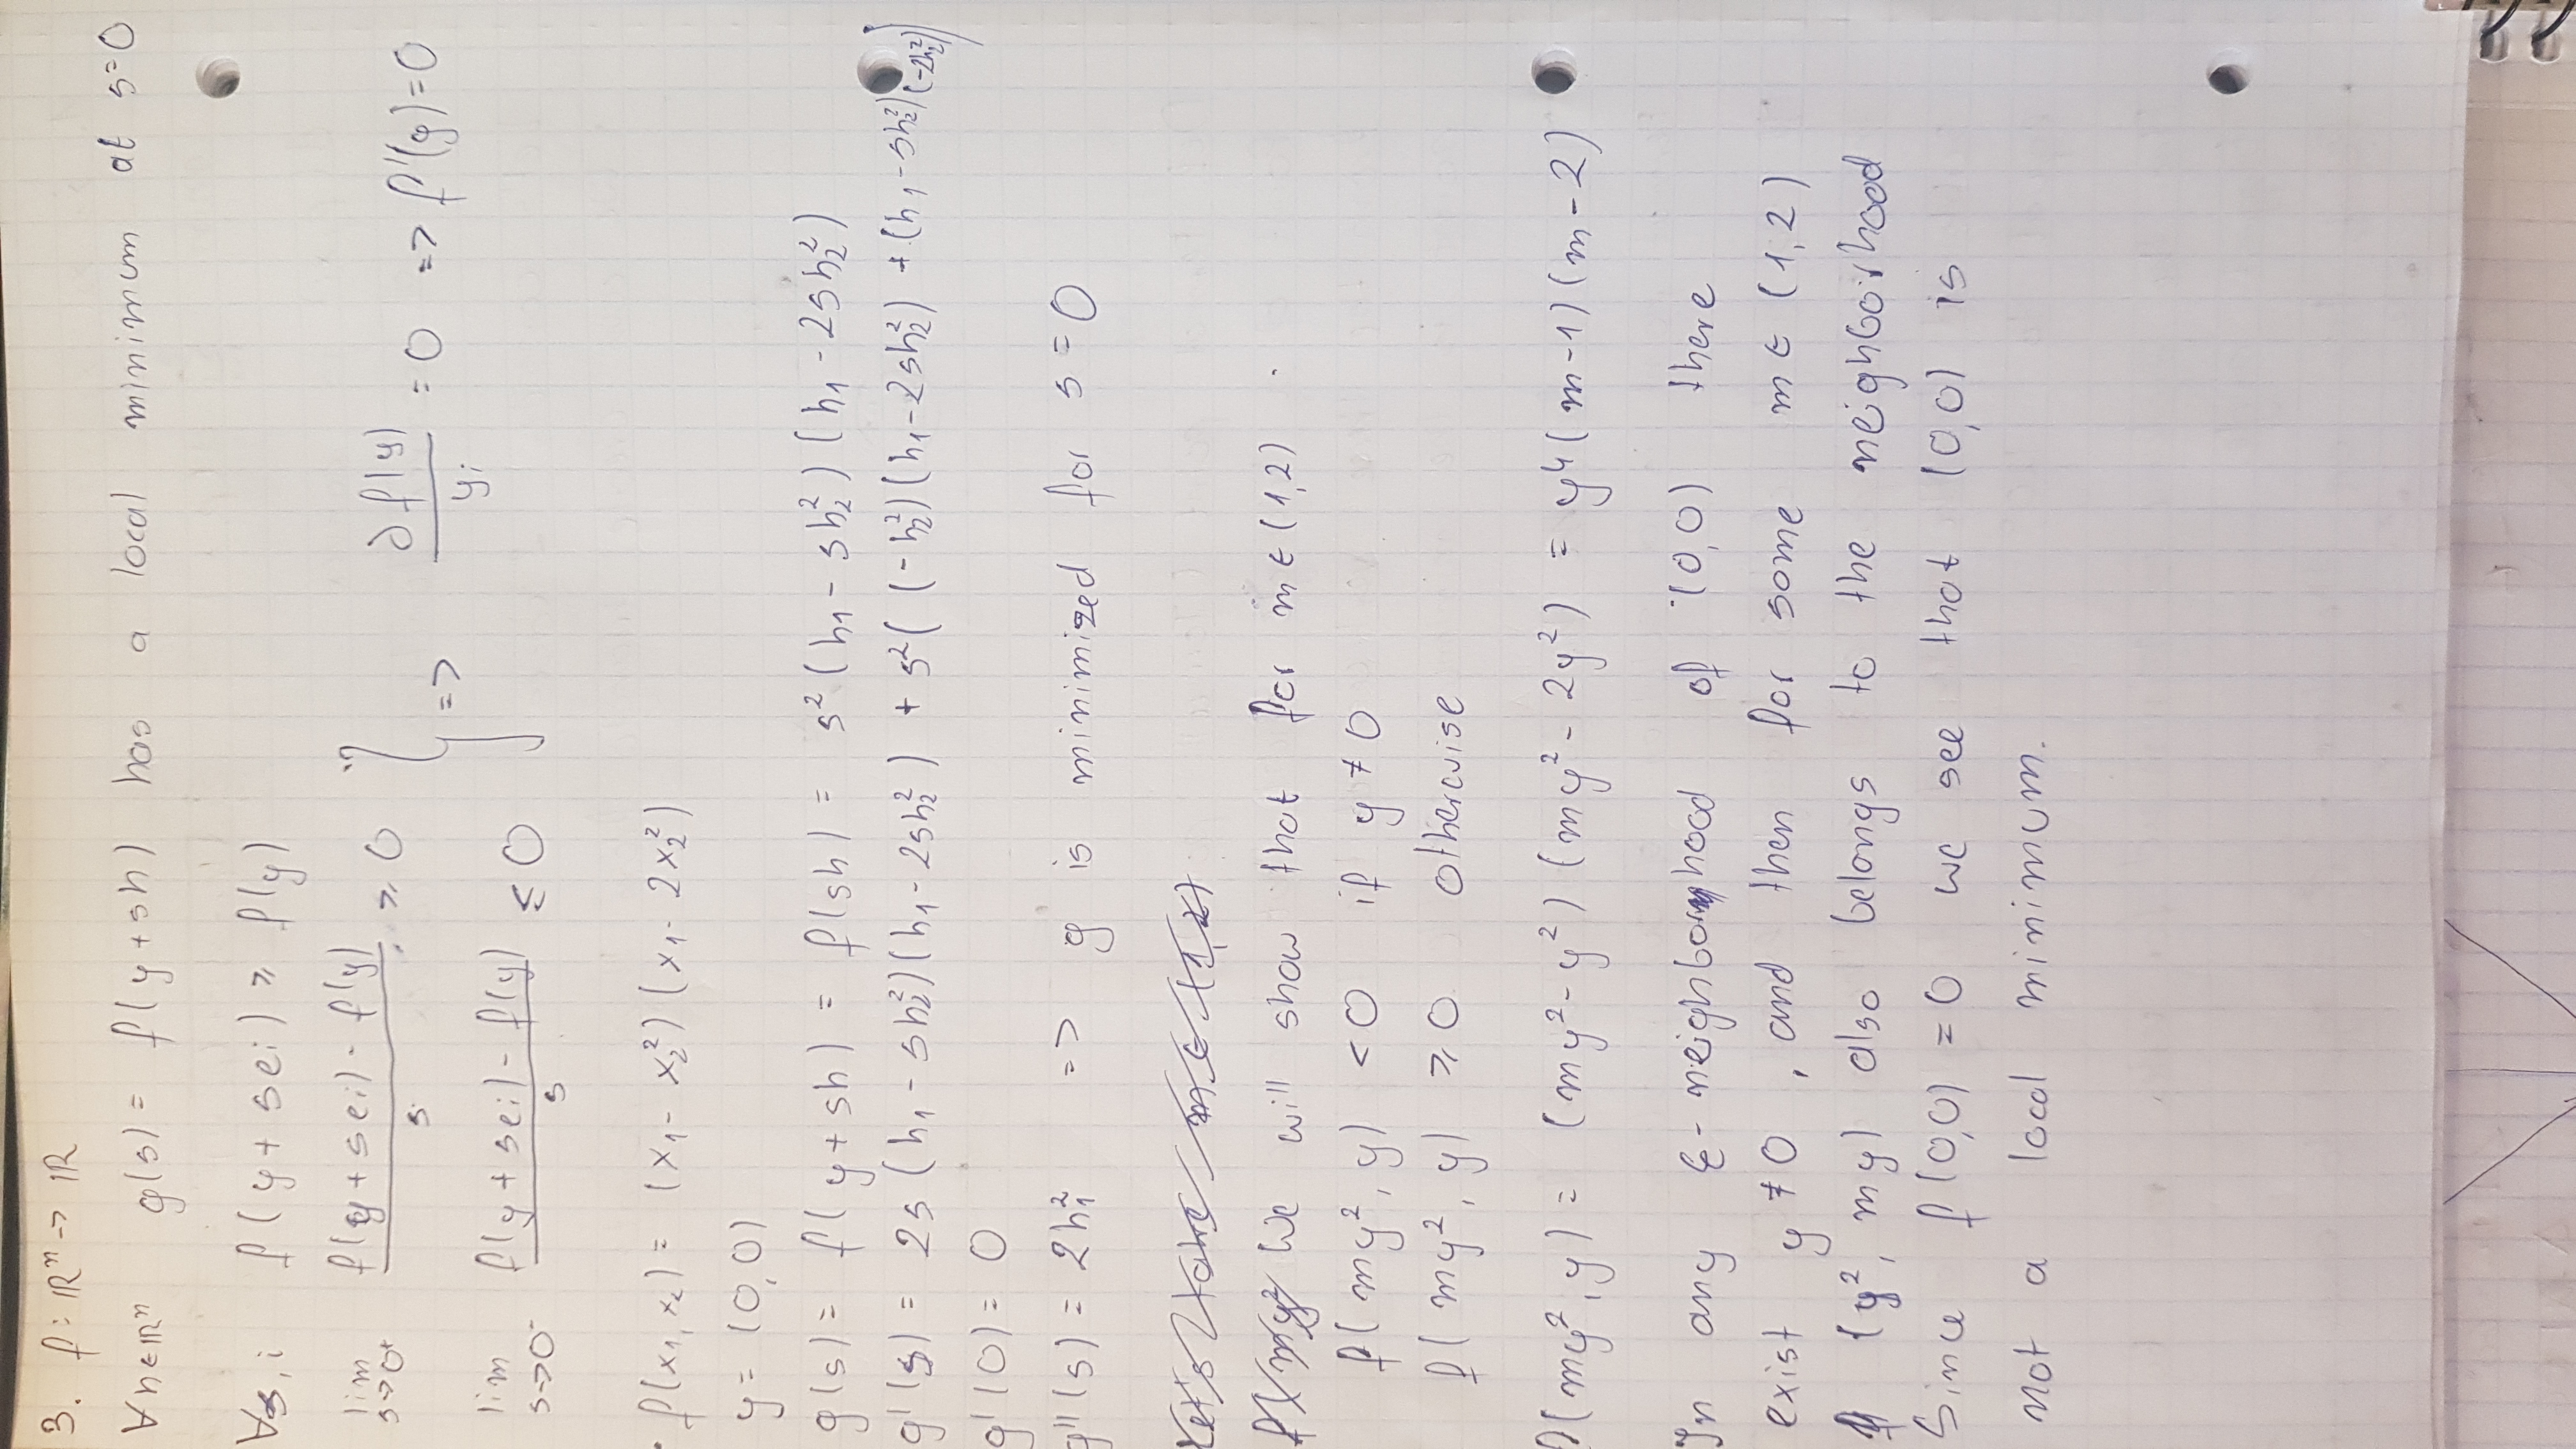 3. f: ℝⁿ -> ℝ
∀h∈ℝⁿ g(s) = f(y+sh) has a local minimum at s=0
∀s,i f(y+sei) ≥ f(y)
lim s->0⁺ (f(y+sei) - f(y))/s ≥ 0
lim s->0⁻ (f(y+sei) - f(y))/s ≤ 0
} => ∂f(y)/yi = 0 => f'(y)=0
• f(x₁,x₂) = (x₁ - x₂²)(x₁ - 2x₂²)
y = (0,0)
g(s) = f(y+sh) = f(sh) = s²(h₁ - sh₂²)(h₁ - 2sh₂²)
g'(s) = 2s(h₁ - sh₂²)(h₁ - 2sh₂²) + s²((-h₂²)(h₁-2sh₂²) + (h₁-sh₂²)(-2h₂²))
g'(0) = 0
g''(s) = 2h₁² => g is minimized for s = 0
We will show that for m∈(1,2)
f(my², y) < 0 if y ≠ 0
f(my², y) ≥ 0 otherwise
f(my², y) = (my² - y²)(my² - 2y²) = y⁴(m-1)(m-2)
In any ε-neighborhood of (0,0) there
exist y ≠ 0, and then for some m∈(1,2)
(y², my) also belongs to the neighborhood
Since f(0,0) = 0 we see that (0,0) is
not a local minimum.